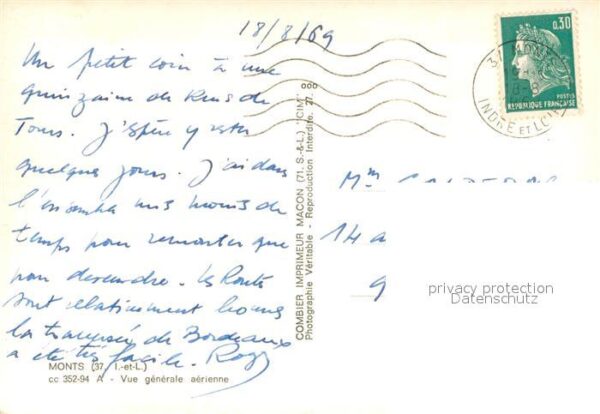 18/8/69
Un petit coin à une
quinzaine de Kms de
Tours. J'espère y rester
quelques jours. J'ai dans
l'ensemble mis moins de
temps pour remonter que
pour descendre. Les Routes
sont relativement bonnes
la traversée de Bordeaux
a été très facile. Roger
MONTS (37. I.-et-L.)
cc 352-94 A - Vue générale aérienne
COMBIER IMPRIMEUR MACON (71. S.-&-L.) "CIM"
Photographie Véritable - Reproduction Interdite.
0,30
POSTES
REPUBLIQUE FRANÇAISE
37 MONTS
INDRE ET LOIRE
14 a
9
privacy protection
Datenschutz